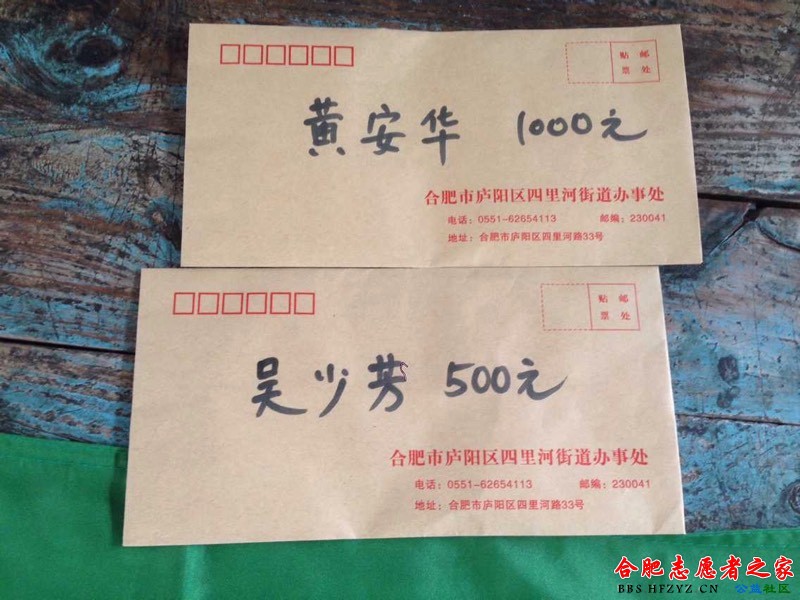 贴 邮
票 处
黄安华 1000元
合肥市庐阳区四里河街道办事处
电话：0551-62654113 邮编：230041
地址：合肥市庐阳区四里河路33号
贴 邮
票 处
吴少芳 500元
合肥市庐阳区四里河街道办事处
电话：0551-62654113 邮编：230041
地址：合肥市庐阳区四里河路33号
合肥志愿者之家
BBS.HFZYZ.CN 公益社区